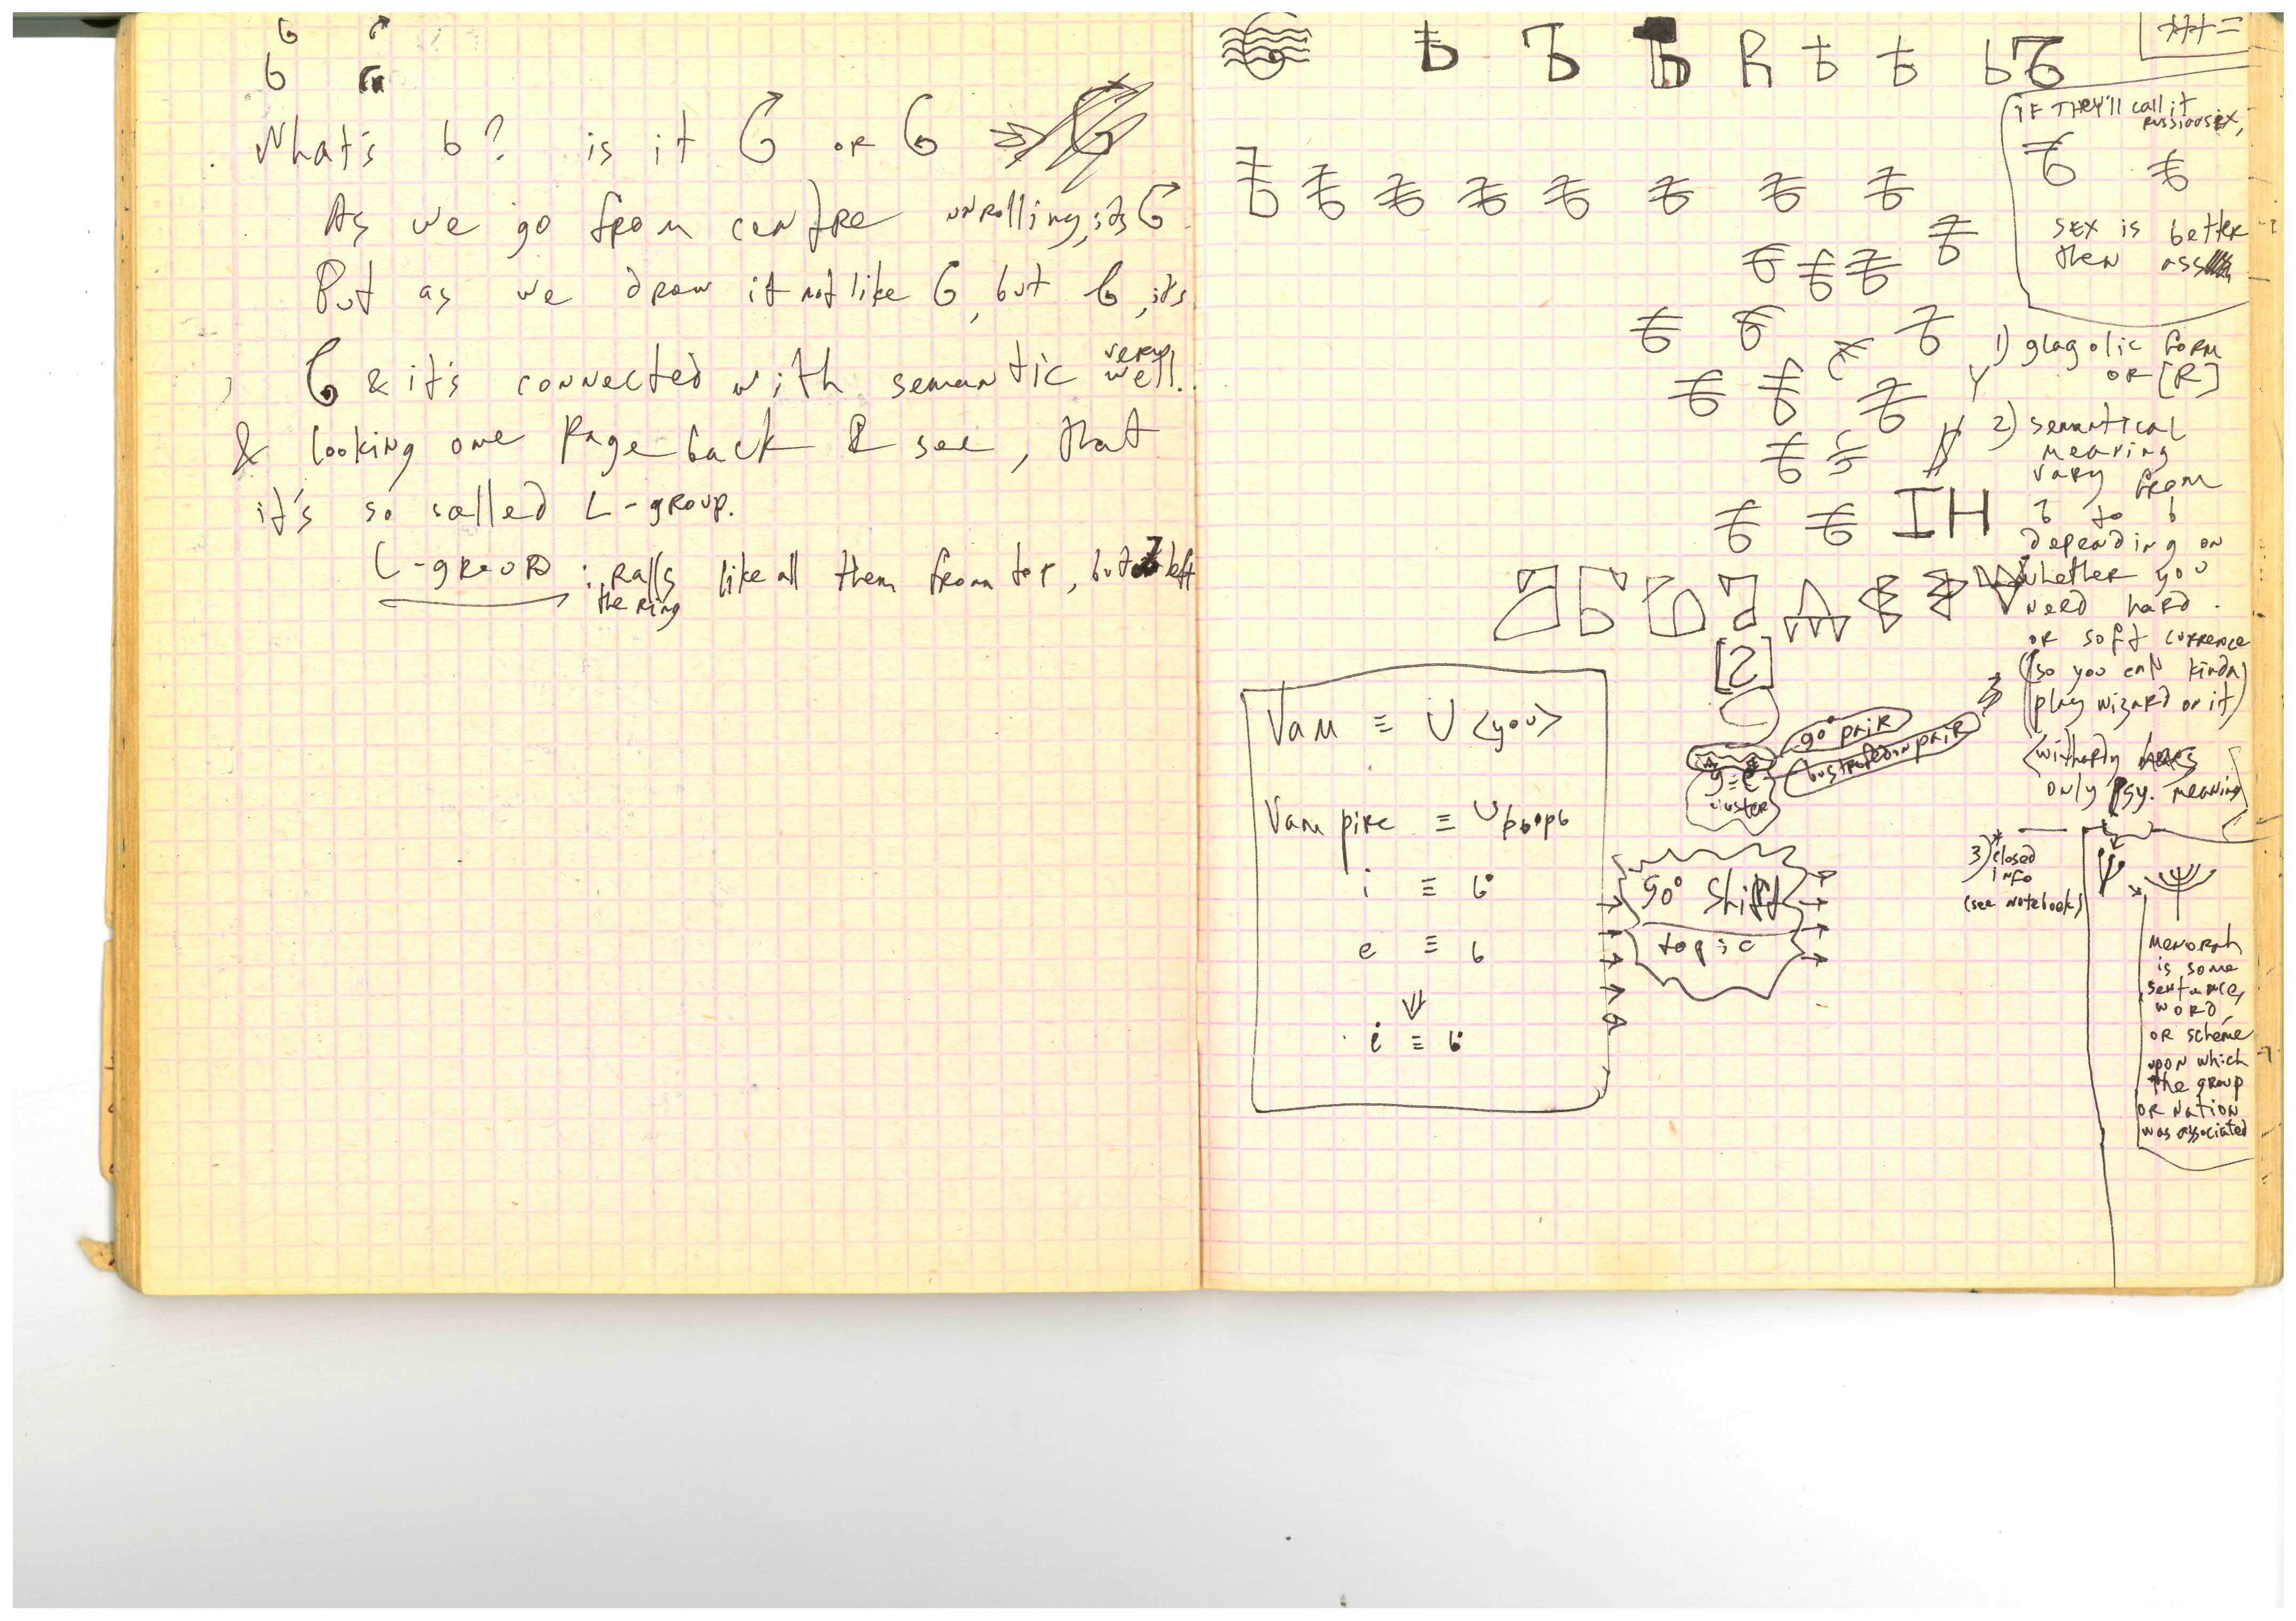 What's b? is it G or G ⇒
As we go from centre unrolling, its G
But as we draw it not like G, but b, it's
G & it's connected with semantic very well.
& looking one page back I see, that
it's so called L-group.
L-group : ralls the ring like all them from top, but left
IF THEY'll call it
SEX is better
then ass
1) glagolic form
or [R]
2) semantical
meaning
vary from
Ъ to b
depending on
whether you
need hard
or soft currence
(so you can kinda
play wizard on it)
only psy. meaning
IH
[2]
90° pair
bustrofedon pair
cluster
Vam ≡ U <you>
Vampire ≡
i ≡ b
e ≡ b
⇓
i ≡ b
90° Shift
topic
3)* closed
info
(see notebook)
Menorah
is some
sentence,
word,
or scheme
upon which
the group
or nation
was associated